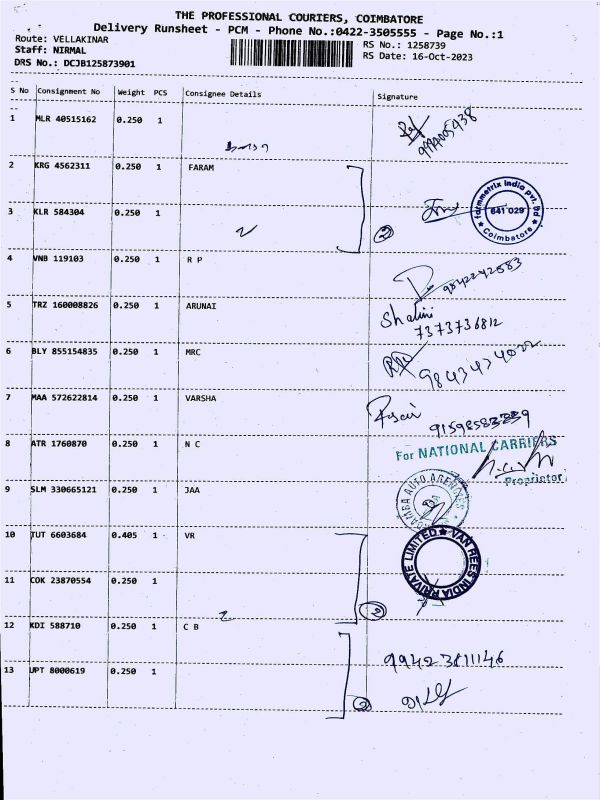 THE PROFESSIONAL COURIERS, COIMBATORE
Delivery Runsheet - PCM - Phone No.:0422-3505555 - Page No.:1
Route: VELLAKINAR
RS No.: 1258739
Staff: NIRMAL
RS Date: 16-Oct-2023
DRS No.: DCJB125873901
S No Consignment No Weight PCS Consignee Details Signature
1 MLR 40515162 0.250 1
2 KRG 4562311 0.250 1 FARAM
farmmetrix india pvt. ltd
641 029
Coimbatore
3 KLR 584304 0.250 1
2
4 VNB 119103 0.250 1 R P
9842242583
5 TRZ 160008826 0.250 1 ARUNAI
Shalini
7373736812
6 BLY 855154835 0.250 1 MRC
9843474022
7 MAA 572622814 0.250 1 VARSHA
8 ATR 1760870 0.250 1 N C
For NATIONAL CARRIERS
Proprietor
9 SLM 330665121 0.250 1 JAA
10 TUT 6603684 0.405 1 VR
VAN REES INDIA PRIVATE LIMITED
11 COK 23870554 0.250 1
2
12 KDI 588710 0.250 1 C B
9942381146
13 UPT 8000619 0.250 1
2